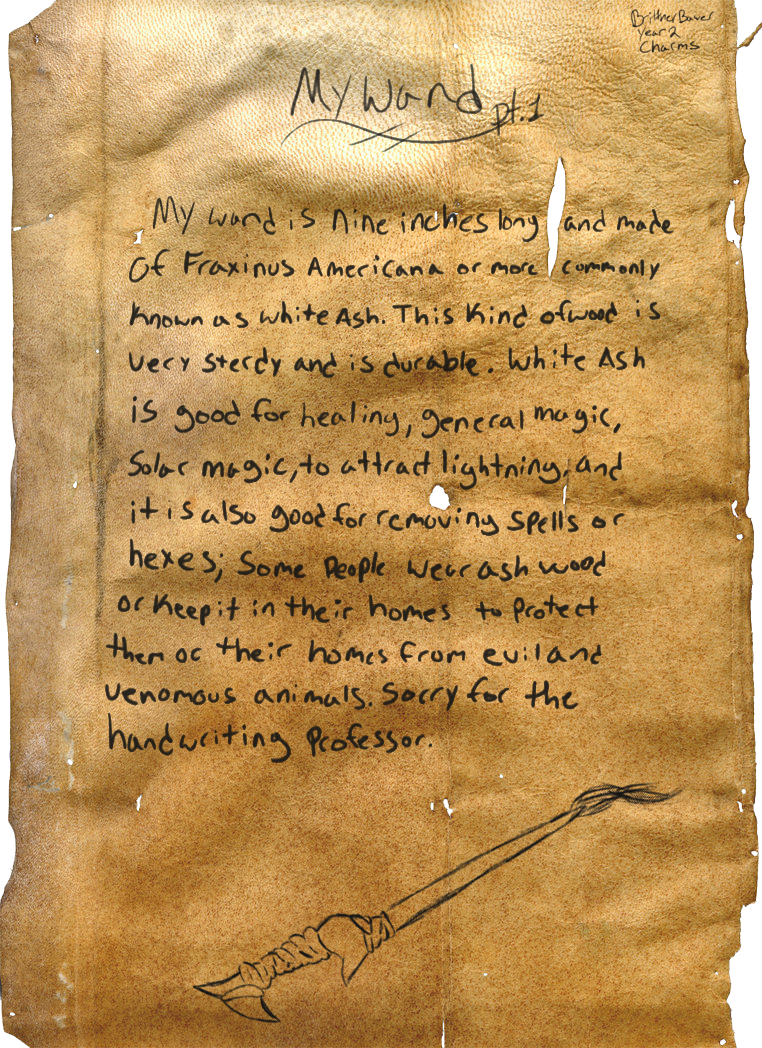 Brittner Bauer
Year 2
Charms
My Wand pt.1
My wand is nine inches long and made
Of Fraxinus Americana or more commonly
known as white Ash. This kind of wood is
very sterdy and is durable. White Ash
is good for healing, general magic,
Solar magic, to attract lightning, and
it is also good for removing spells or
hexes; Some People wear ash wood
or keep it in their homes to protect
them or their homes from evil and
venomous animals. Sorry for the
handwriting Professor.